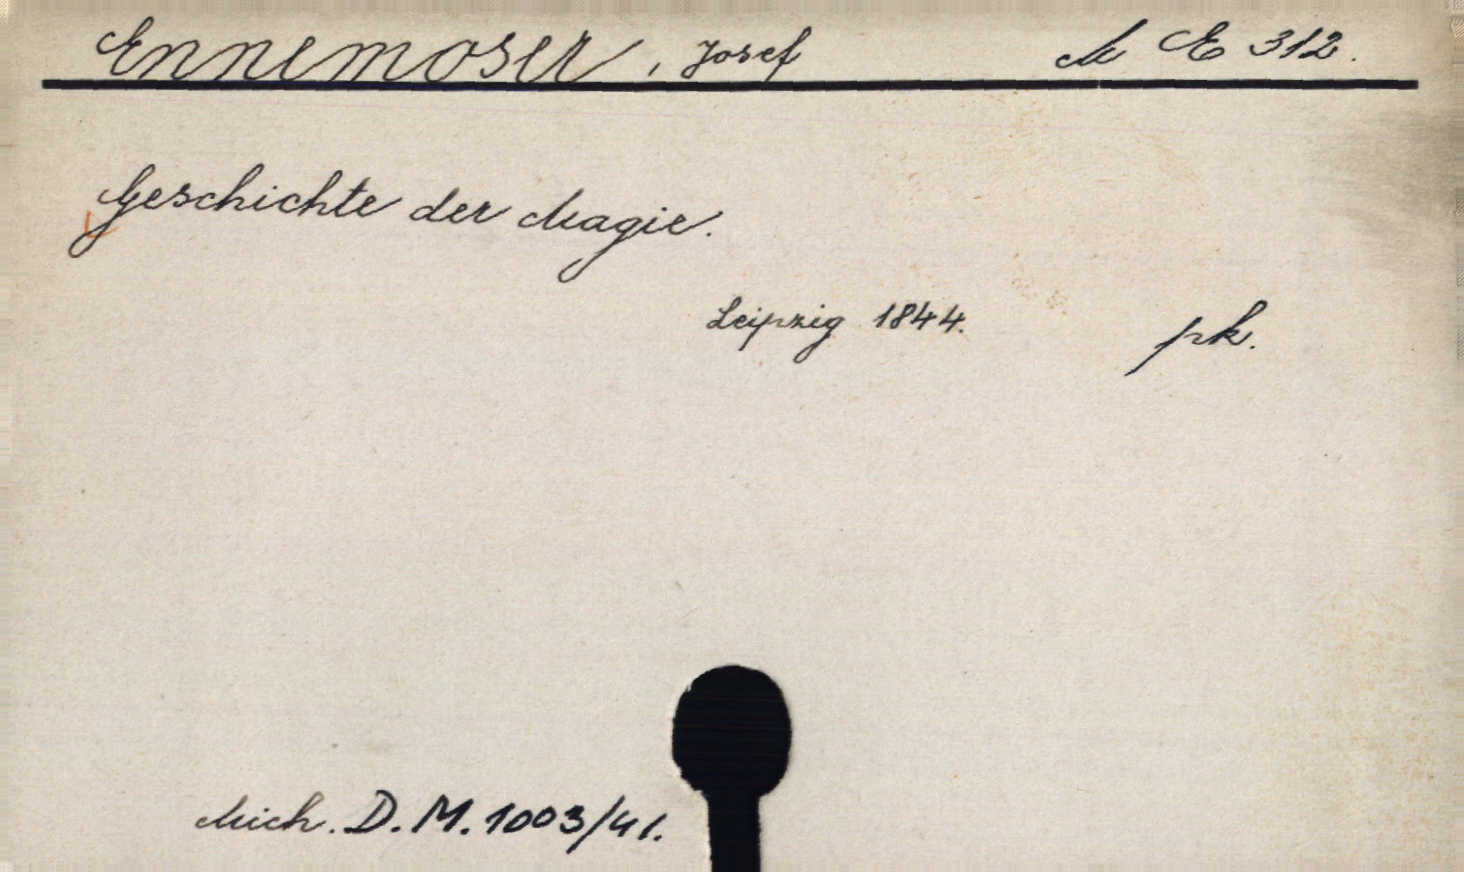 Ennemoser, Josef M E 312.
Geschichte der Magie.
Leipzig 1844. pk.
Mich. D. M. 1003/41.